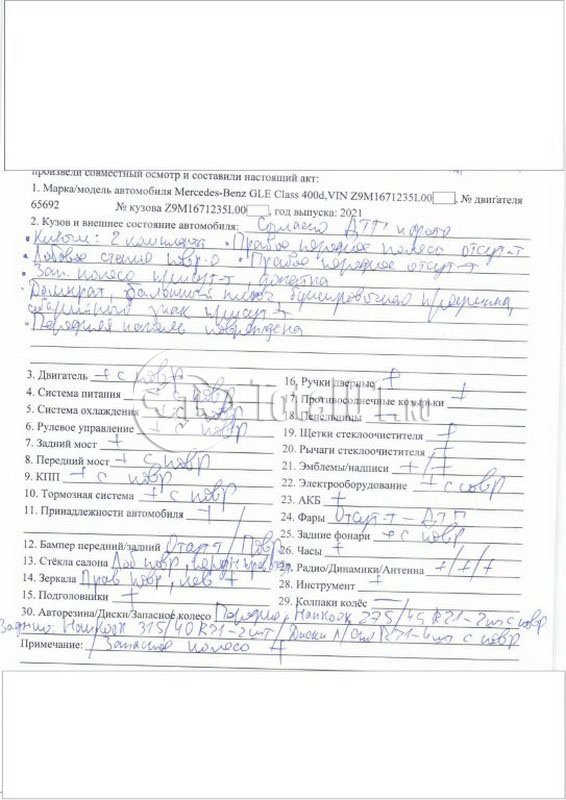 произвели совместный осмотр и составили настоящий акт:
1. Марка/модель автомобиля Mercedes-Benz GLE Class 400d,VIN Z9M1671235L00 , № двигателя
65692 № кузова Z9M1671235L00 , год выпуска: 2021
2. Кузов и внешнее состояние автомобиля: Согласно ДТП и фото
• Ключи: 2 комплекта • Правое переднее колесо отсут-т
• Лобовое стекло повр-о • Правое переднее отсут-т
• Зап. колесо присут-т, докатка
• Домкрат, балонный ключ, буксировочная проушина,
аварийного знак присут-т
• Передняя панель повреждена
3. Двигатель + с повр
4. Система питания + с повр
5. Система охлаждения + с повр
6. Рулевое управление + с повр
7. Задний мост +
8. Передний мост + с повр
9. КПП + с повр
10. Тормозная система + с повр
11. Принадлежности автомобиля +
12. Бампер передний/задний Отсут-т / Повр
13. Стёкла салона Лоб повр,
14. Зеркала Прав повр, лев +
15. Подголовники +
16. Ручки дверные +
17. Противосолнечные козырьки +
18. Пепельницы —
19. Щетки стеклоочистителя +
20. Рычаги стеклоочистителя +
21. Эмблемы/надписи +/+
22. Электрооборудование + с повр
23. АКБ +
24. Фары Отсут-т - ДТП
25. Задние фонари + с повр
26. Часы +
27. Радио/Динамики/Антенна +/+/+
28. Инструмент +
29. Колпаки колёс —
30. Авторезина/Диски/Запасное колесо Передние: Hankook 275/45 R21-2шт с повр
Задние: Hankook 315/40 R21-2шт / Диски R21-4шт с повр
Примечание: / Запасное колесо +
TOTAL01.RU